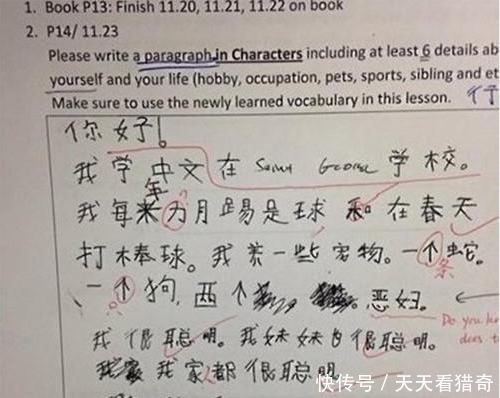 1. Book P13: Finish 11.20, 11.21, 11.22 on book
2. P14/ 11.23
Please write a paragraph in Characters including at least 6 details ab
yourself and your life (hobby, occupation, pets, sports, sibling and et
Make sure to use the newly learned vocabulary in this lesson.
你好！
我学中文在 Saint George 学校。
年
我每 月踢是球 和 在春天
打棒球。我养一些宠物。一个蛇。
条
一个狗，两个 恶妇。
Do you
does
我很聪明。我妹妹也很聪明。
我家 我家都很聪明
快传号／天天看猎奇